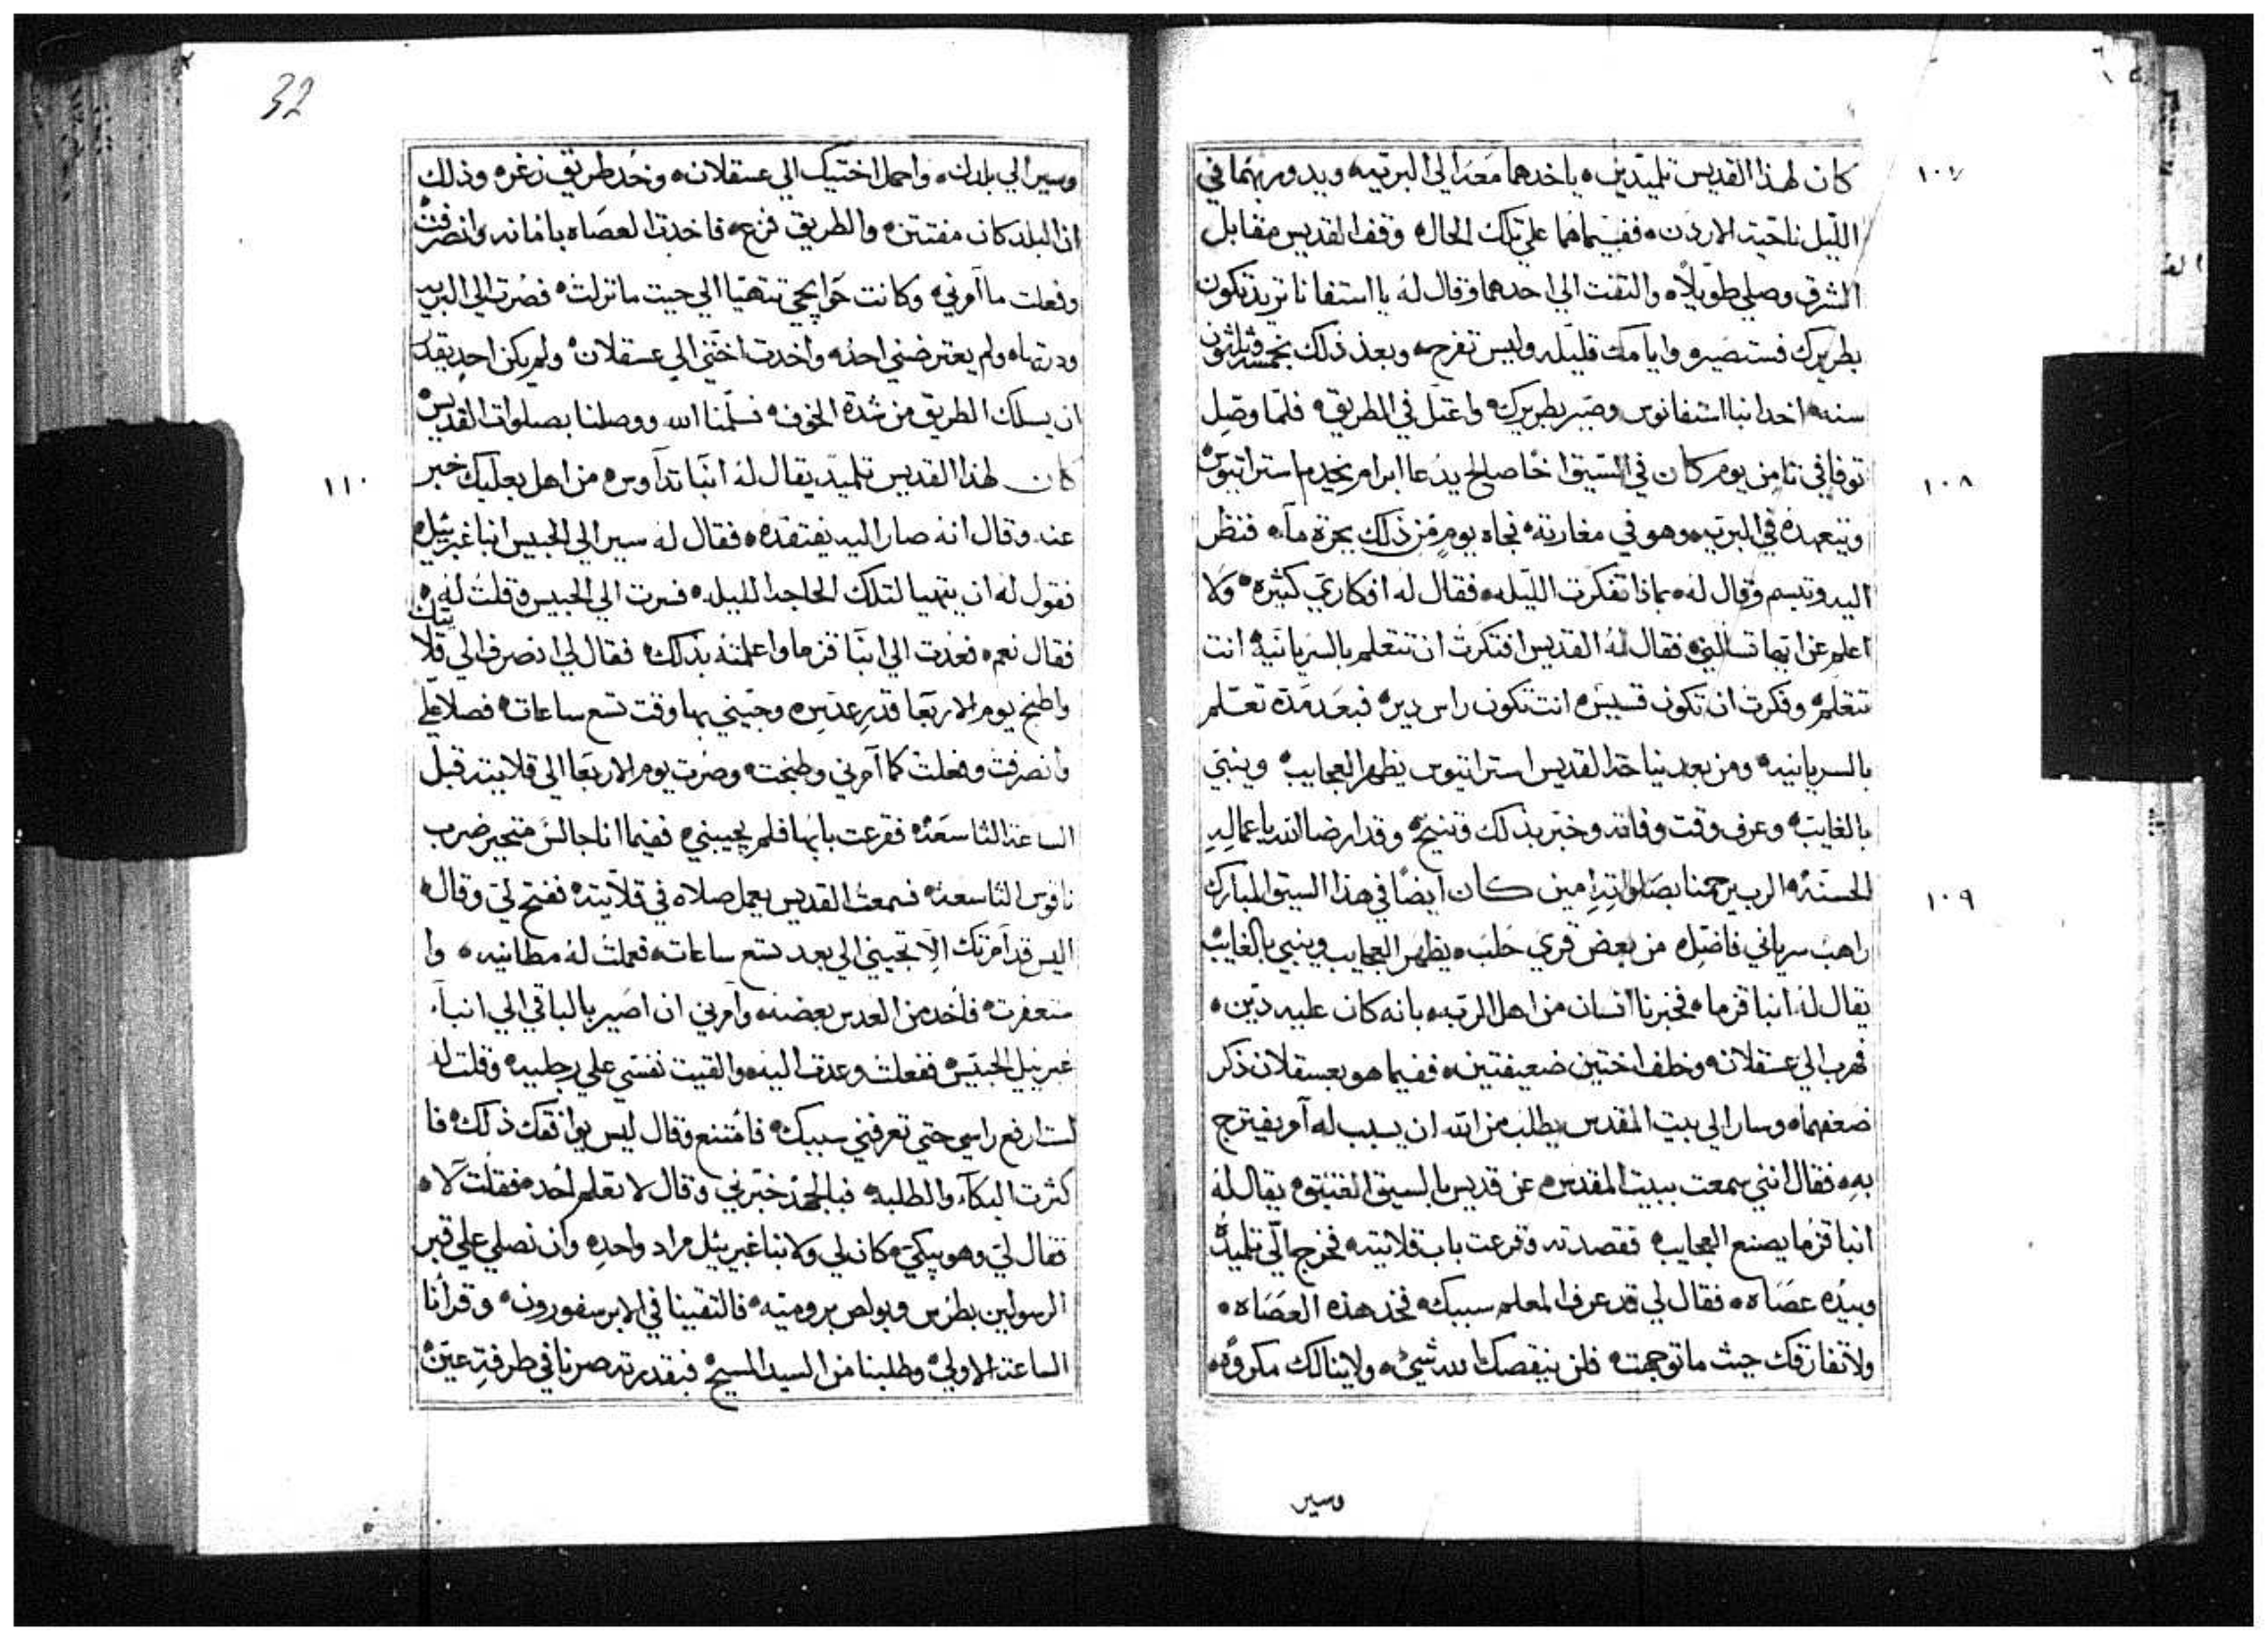 ١٠٧
كان لهذا القديس تلميذين ياخدهما معه الي البريه ويدور بهما في
الليل ناحية الاردن ففيما هما علي تلك الحال وقف القديس مقابل
الشرق وصلي طويلاً والتفت الي احدهما وقال له يا استفانا تريد تكون
بطريرك فستصير وايامك قليله وليس تفرح وبعد ذلك بخمسة وثلثون
سنه اخد انبا استفانوس وصير بطريرك واعتل في الطريق فلما وصل
١٠٨
توفا في ثامن يوم كان في السيق اخا صالح يدعا ابرام يخدم استراتيوس
ويتعهده في البريه وهو في مغارته فجاه يوم من ذلك بجرة مآء فنظر
اليه وتبسم وقال له بماذا تفكرت الليله فقال له افكاري كثيره ولا
اعلم عن ايها تسالني فقال له القديس افتكرت ان تتعلم بالسريانيه انت
تتعلم وفكرت ان تكون قسيس انت تكون راس دير فبعد مدة تعلم
بالسريانيه ومن بعد نياحة القديس استراتيوس يظهر العجايب وينبي
بالغايب وعرف وقت وفاته وخبر بذلك وتنيح وقد ارضا الله باعماله
١٠٩
الحسنه الرب يرحمنا بصلواته امين كان ايضاً في هذا السيق المبارك
راهب سرياني فاضل من بعض قري حلب يظهر العجايب وينبي بالغايب
يقال له انبا قزما فخبرنا انسان من اهل الرتبه بانه كان عليه دين
فهرب الي عسقلان وخلف اختين ضعيفتين ففيما هو بعسقلان ذكر
ضعفهما وسار الي بيت المقدس يطلب من الله ان يسبب له آمر يفترج
به فقال انني سمعت ببيت المقدس عن قديس بالسيق العتيق يقال له
انبا قزما يصنع العجايب فقصدته وقرعت باب قلايته فخرج الّي تلميذ
وبيده عصاه فقال لي قد عرف المعلم سببك فخد هذه العصاه
ولا تفارقك حيث ما توجهت فلن ينقصك الله شيء ولا ينالك مكروه
وسير
32
وسير الي بلدك واحمل اختيك الي عسقلان وخد طريق زغر وذلك
ان البلد كان مفتتن والطريق فزع فاخدت العصاه بامانه وانصرفت
وفعلت ما آمرني وكانت حوايجي تتهيا الي حيت ما نزلت فصرت الي البريه
ودرتها ولم يعترضني احد واخدت اختي الي عسقلان ولم يكن احد يقدر
ان يسلك الطريق من شدة الخوف فسلمنا الله ووصلنا بصلوات القديس
١١٠
كان لهذا القديس تلميد يقال له انبا تدآوس من اهل بعلبك خبر
عنه وقال انه صار اليه يفتقده فقال له سير الي الحبيس انبا غبرئيل
فقول له ان يتهيا لتلك الحاجه الليله فسرت الي الحبيس وقلت له
فقال نعم فعدت الي انبا قزما واعلمته بذلك فقال لي انصرف الي قلايتك
واطبخ يوم الاربعا قدر عدس وجيبني بها وقت تسع ساعات فصلا علي
وانصرفت وفعلت كما آمرني وطبخت وصرت يوم الاربعا الي قلايته قبل
الساعة التاسعه فقرعت بابها فلم يجيبني ففيما انا جالس متحير ضرب
ناقوس التاسعه فسمعت القديس يعمل صلاه في قلايته ففتح لي وقال
اليس قد آمرتك الا تجيني الي بعد تسع ساعات فعملت له مطانيه وا
ستغفرت فاخد من العدس بعضه وآمرني ان اصير بالباقي الي انبآ
غبرئيل الحبيس ففعلت وعدت اليه والقيت نفسي علي رجليه وقلت له
لست ارفع راسي حتي تعرفني سببك فامتنع وقال ليس يوافقك ذلك فا
كثرت البكآء والطلبه فبالجهد خبرني وقال لا تعلم احد فقلت لآ
فقال لي وهو يبكي كان لي ولانبا غبرئيل مراد واحد وان نصلي علي قبر
الرسولين بطرس وبولص بروميه فالتقينا في الابرسفورون وقرأنا
الساعة الاولي وطلبنا من السيد المسيح فبقدرته صرنا في طرفة عين